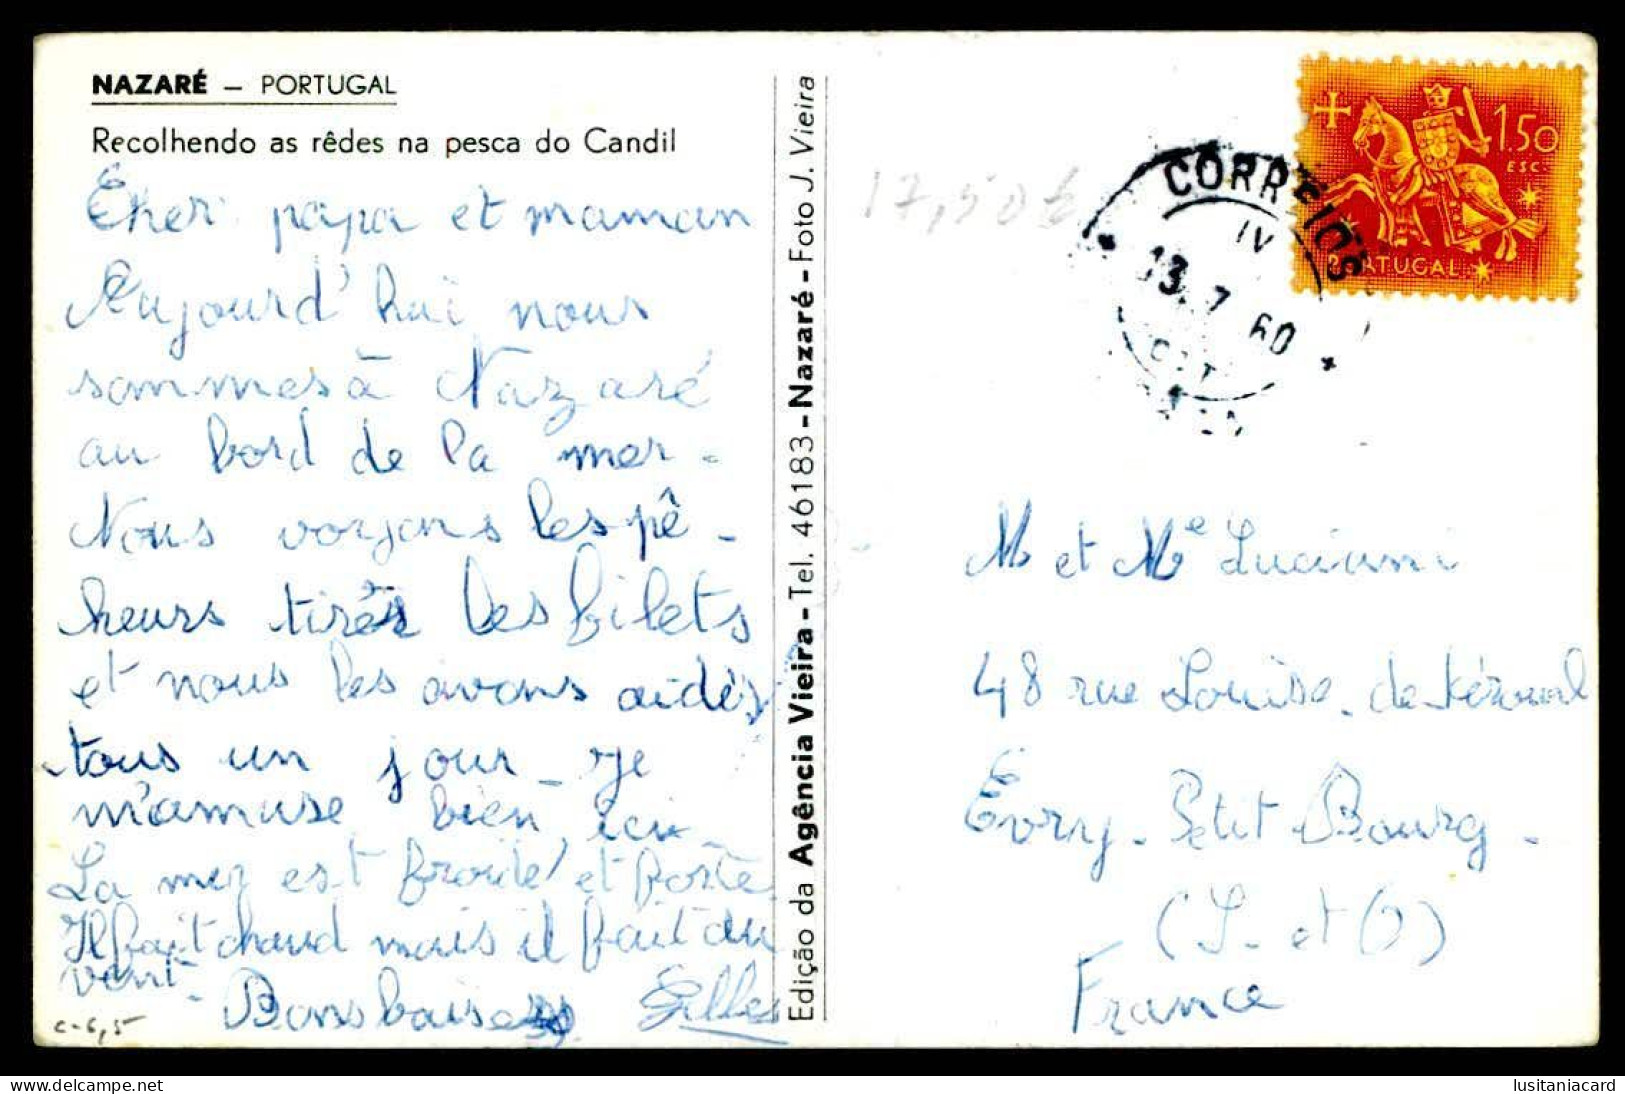 NAZARÉ – PORTUGAL
Recolhendo as rêdes na pesca do Candil
Cher papa et maman
Aujourd'hui nous
sommes à Nazaré
au bord de la mer.
Nous voyons les pê-
heurs tirés les filets
et nous les avons aidés
tous un jour. Je
m'amuse bien ici.
La mer est froide et forte
Il fait chaud mais il fait du
vent.
Bons baisers Gilles
c-6,5
Edição da Agência Vieira - Tel. 46183 - Nazaré - Foto J. Vieira
17,50
CORREIOS
IV
13.7 60
1$50
ESC.
PORTUGAL
M et Me Luciani
48 rue Louise-de Kéroual
Evry-Petit-Bourg-
(S.-et O)
France
lusitaniacard